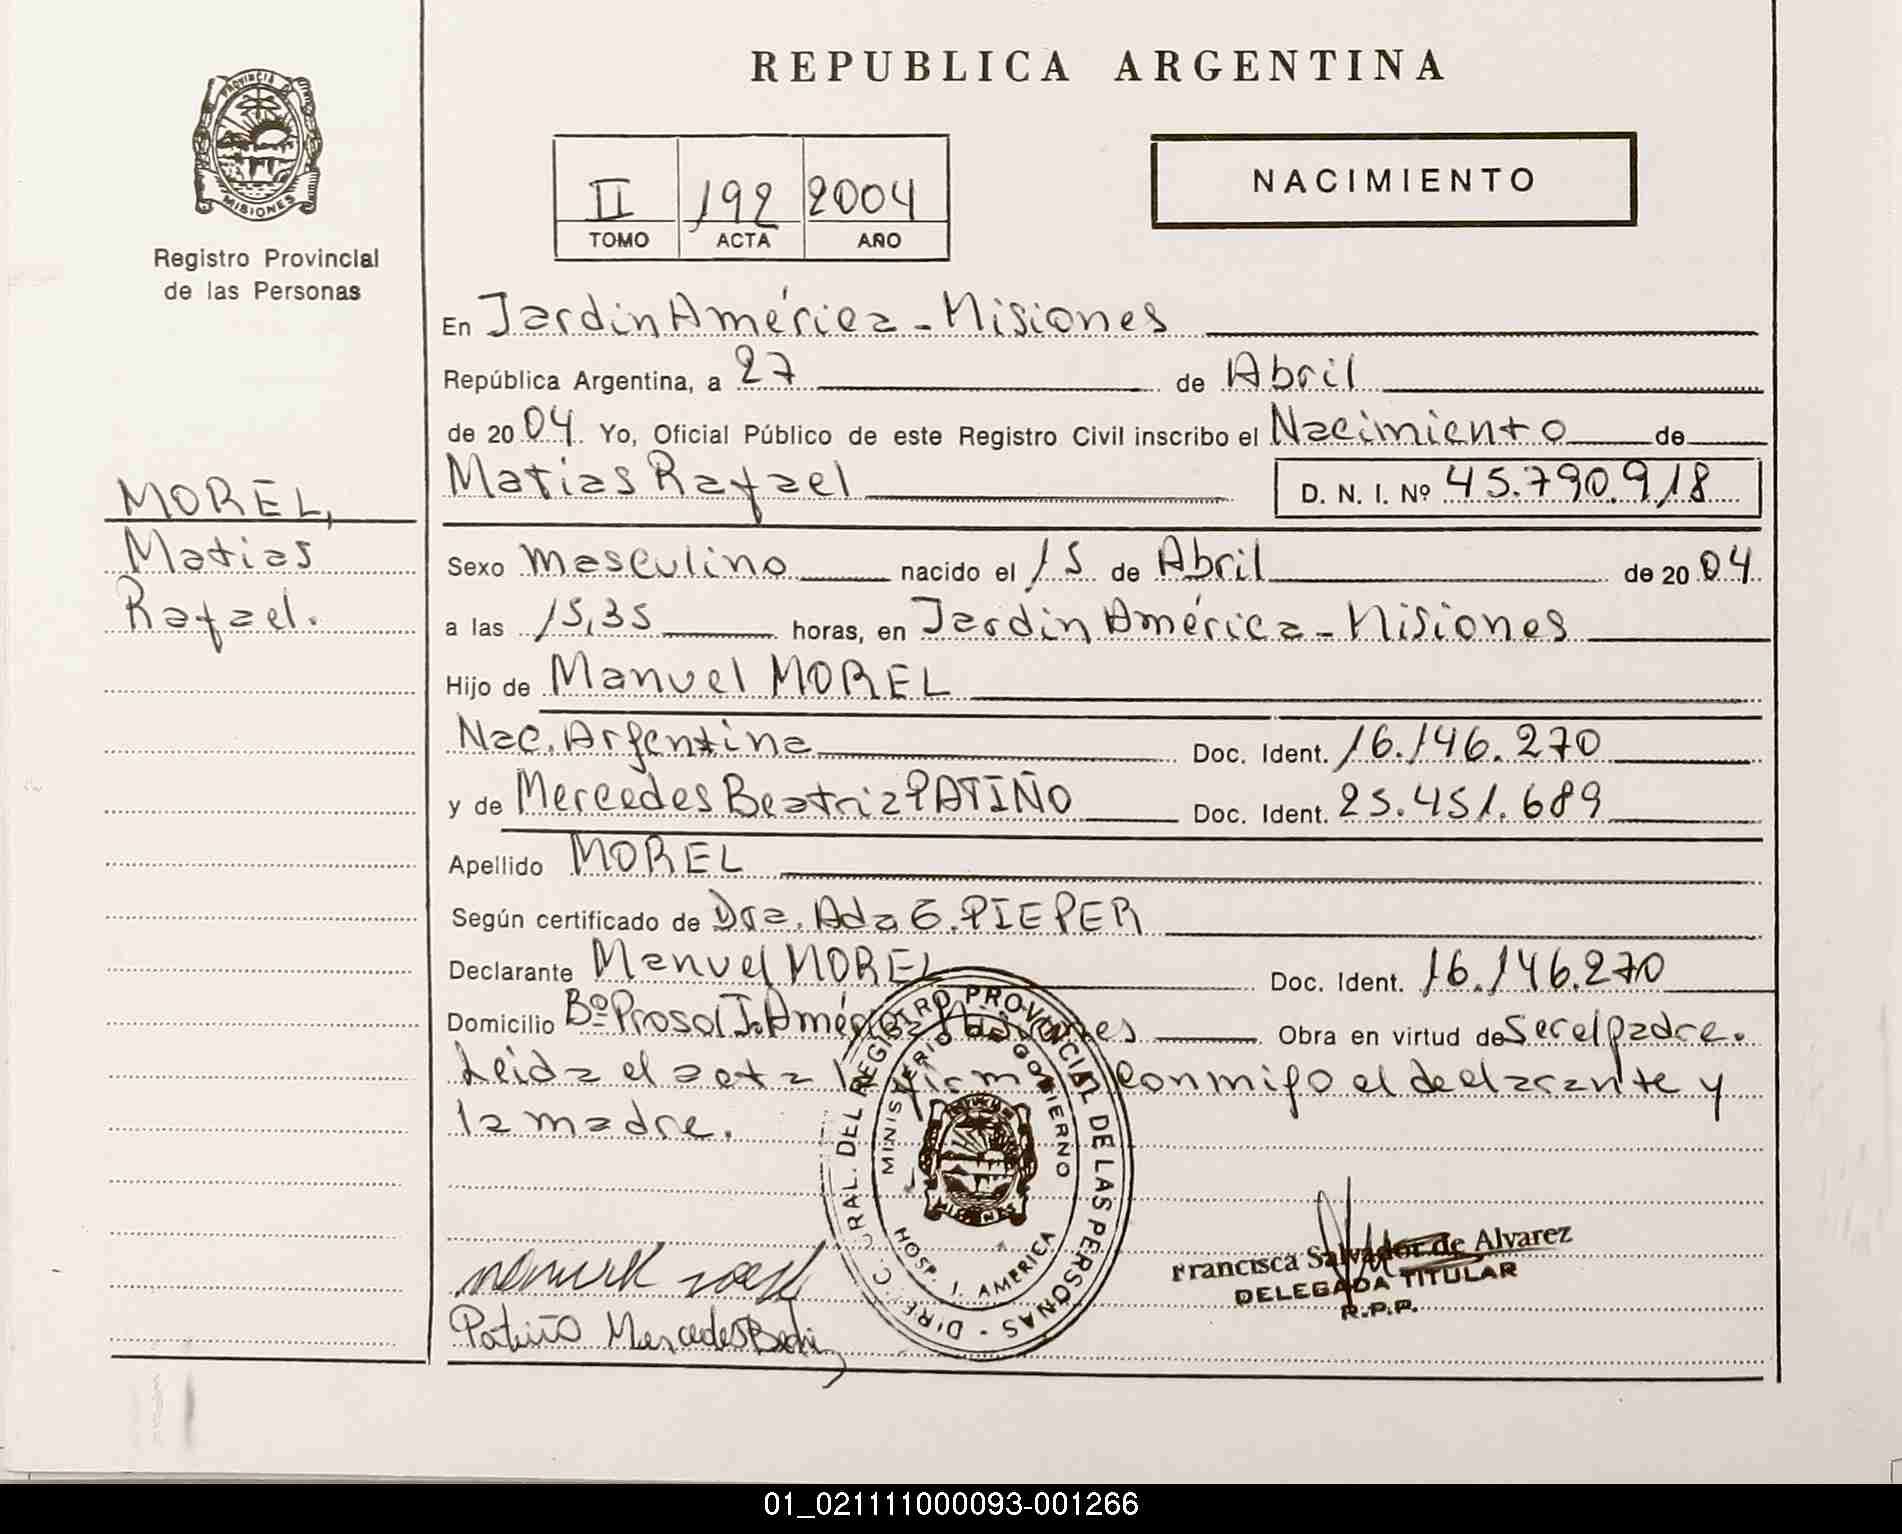 REPUBLICA ARGENTINA
PROVINCIA DE
MISIONES
Registro Provincial
de las Personas
II 192 2004
TOMO ACTA AÑO
NACIMIENTO
En Jardin América - Misiones
República Argentina, a 27 de Abril
de 20 04 Yo, Oficial Público de este Registro Civil inscribo el Nacimiento de
Matias Rafael D. N. I. Nº 45.790.918
MOREL,
Matias
Rafael.
Sexo masculino nacido el 15 de Abril de 20 04
a las 15,35 horas, en Jardin América - Misiones
Hijo de Manuel MOREL
Nac. Argentina Doc. Ident. 16.146.270
y de Mercedes Beatriz PATIÑO Doc. Ident. 25.451.689
Apellido MOREL
Según certificado de Dra. Ada E. PIEPER
Declarante Manuel MOREL Doc. Ident. 16.146.270
Domicilio Bº Prosol J. América Misiones Obra en virtud de Ser el padre.
Leida el acta la firman conmigo el declarante y
la madre.
DIREC. GRAL. DEL REGISTRO PROVINCIAL DE LAS PERSONAS -
MINISTERIO DE GOBIERNO
MISIONES
HOSP. J. AMERICA
Francisca Salvador de Alvarez
DELEGADA TITULAR
R.P.P.
Patiño Mercedes
01_021111000093-001266